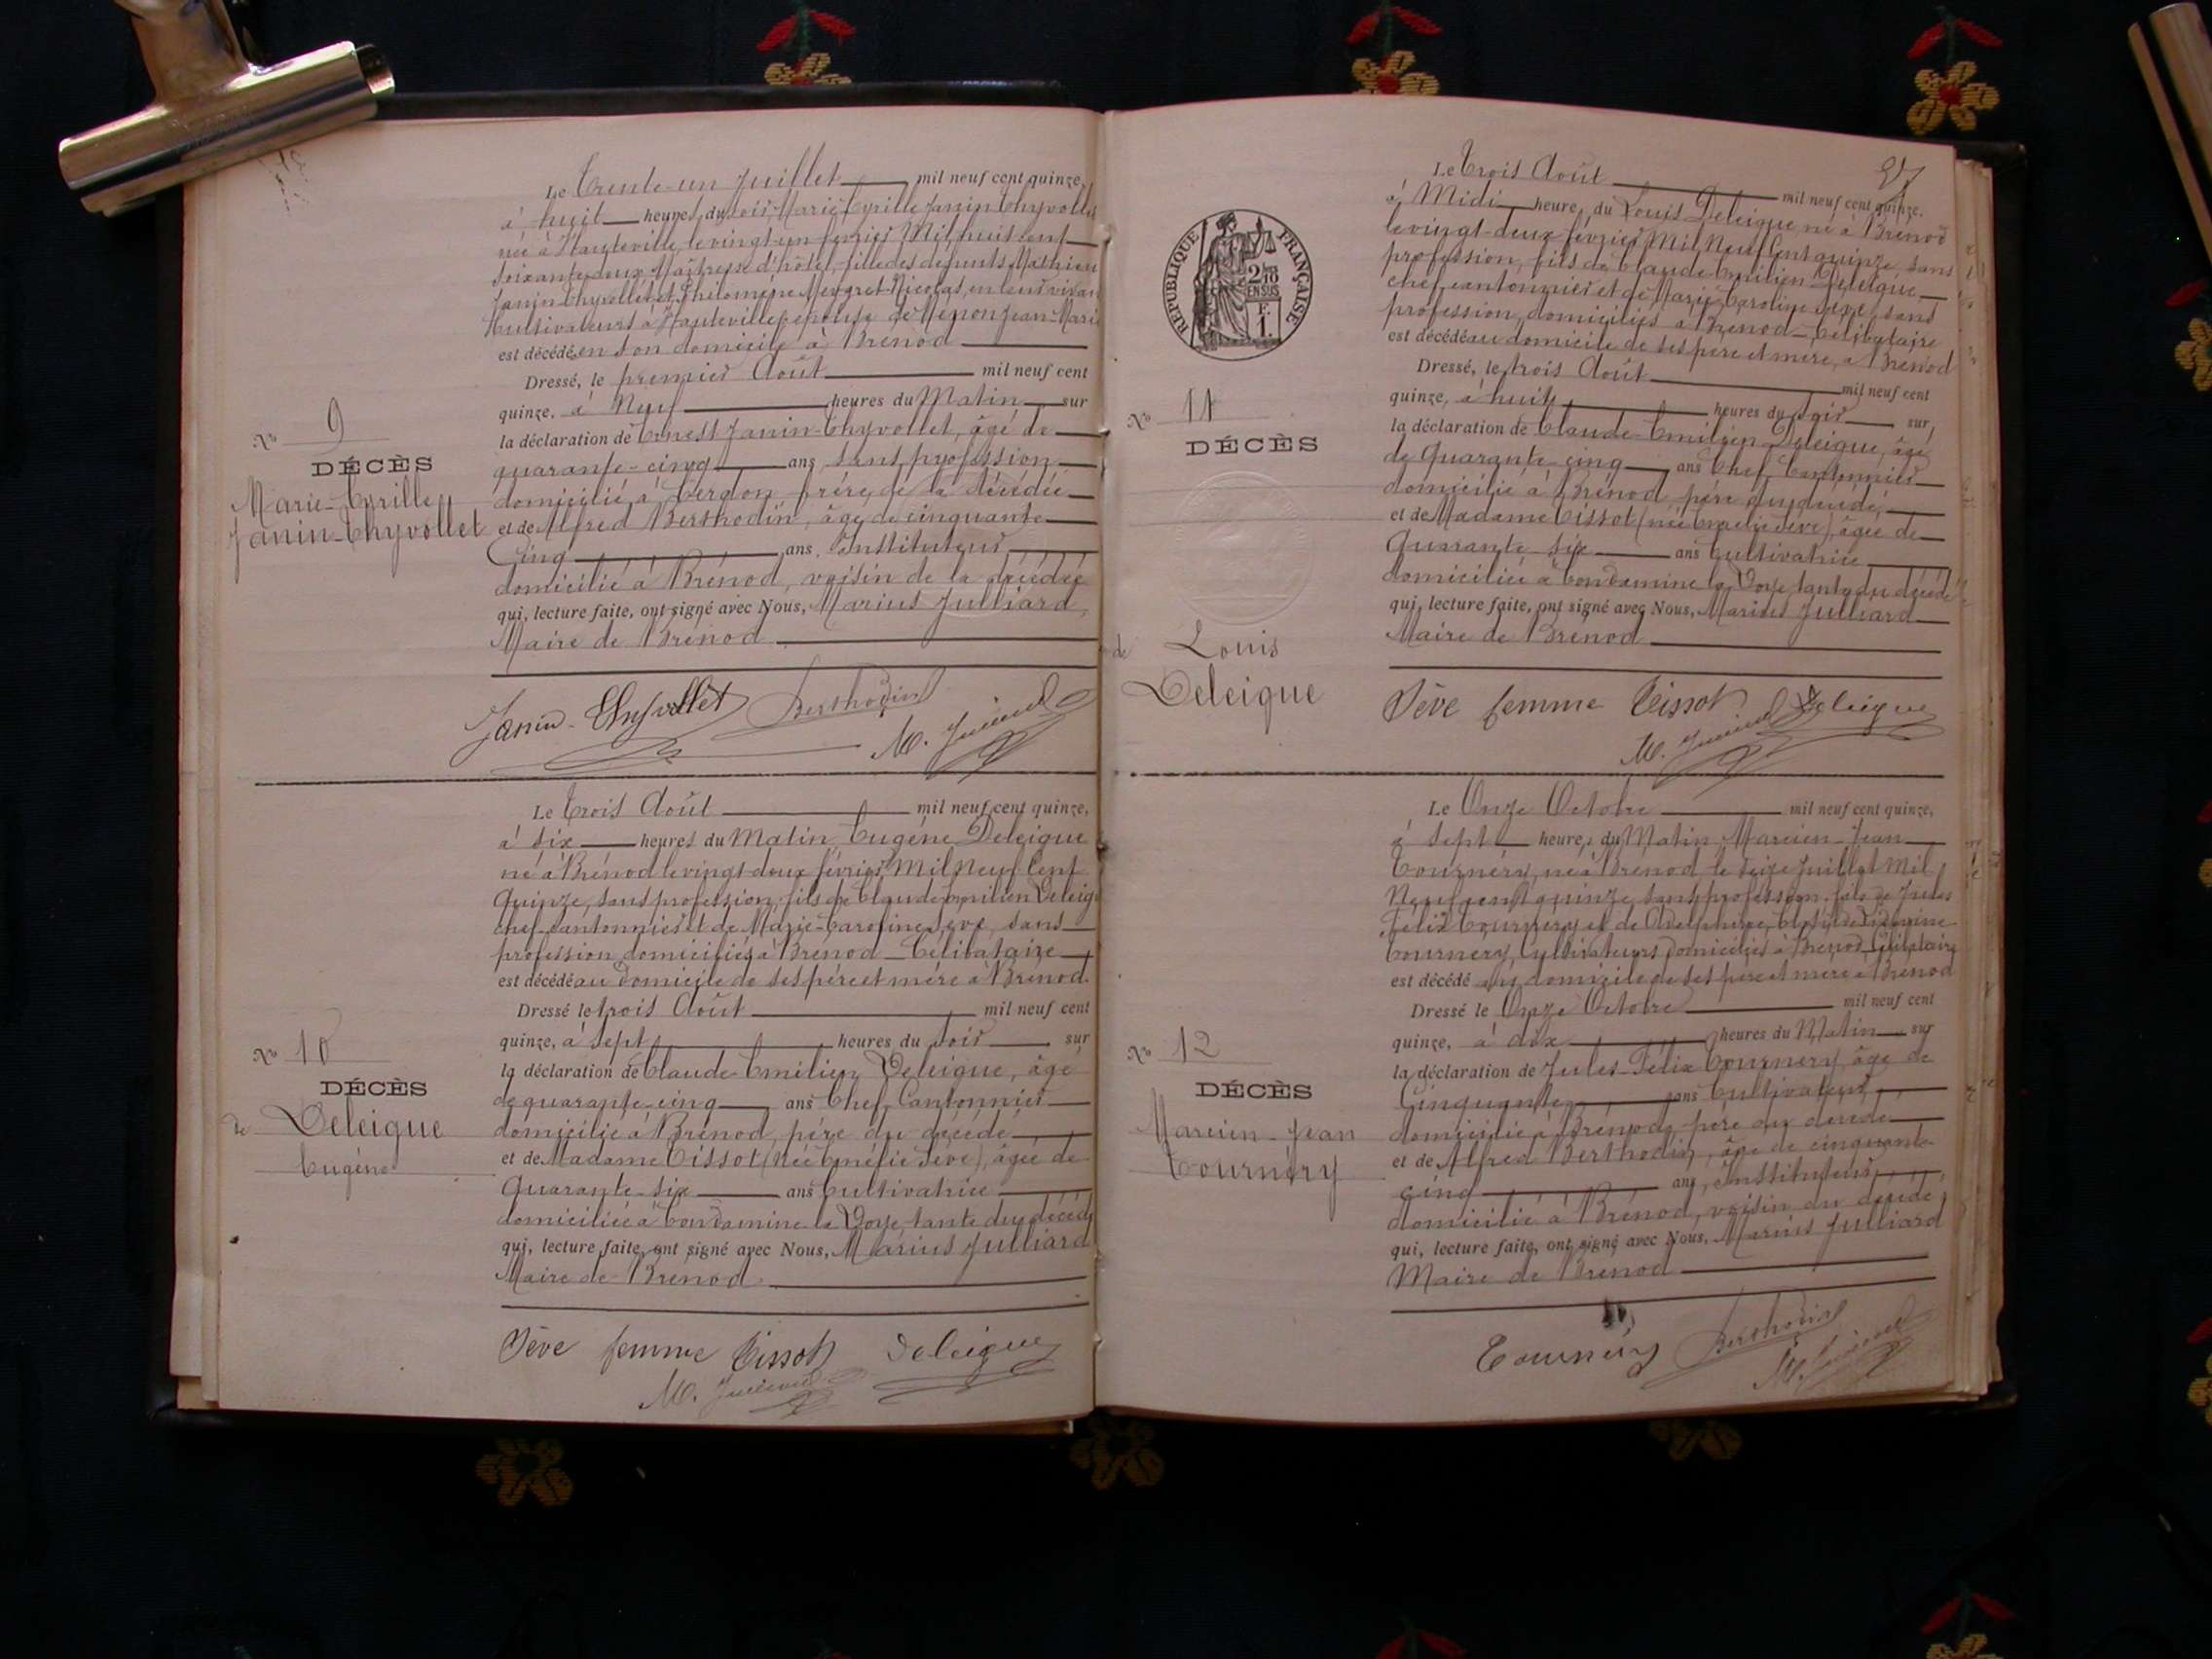 Le Trente-un Juillet mil neuf cent quinze,
à huit heures du soir Marie-Cyrille Janin-Chyvollet
née à Hauteville le vingt-un février Mil huit cent
soixante-deux Maîtresse d'hôtel, fille des defunts Mathieu
Janin-Chyvollet et Philomène Meygret-Nicolas, en leur vivan
Cultivateurs à Hauteville, epouse de Jean-Marie
est décédée en son domicile à Brénod
Dressé, le premier Août mil neuf cent
quinze, à Neuf heures du Matin sur
la déclaration de Ernest Janin-Chyvollet, âgé de
quarante-cinq ans, sans profession
domicilié à Cerdon frère de la décédée
et de Alfred Berthodin, âgé de cinquante
Cinq ans, Instituteur
domicilié à Brénod, voisin de la décédée
qui, lecture faite, ont signé avec Nous, Marius Julliard,
Maire de Brénod
No 9
DÉCÈS
Marie-Cyrille
Janin-Chyvollet
Janin-Chyvollet Berthodin
M. Julliard
Le Trois Août mil neuf cent quinze,
à six heures du Matin Eugène Deleigue
né à Brénod le vingt-deux février Mil Neuf Cent
Quinze, sans profession, fils de Claude-Emilien Deleig
chef-cantonnier et de Marie-Caroline Sève, sans
profession domiciliés à Brénod - Célibataire
est décédé au domicile de ses père et mère à Brénod.
Dressé le trois Août mil neuf cent
quinze, à sept heures du soir sur
la déclaration de Claude-Emilien Deleigue, âgé
de quarante-cinq ans Chef Cantonnier
domicilié à Brénod, père du décédé
et de Madame Tissot (née Sève), âgée de
Quarante-six ans Cultivatrice
domiciliée à Condamine-la-Doye, tante du décédé
qui, lecture faite, ont signé avec Nous, Marius Julliard
Maire de Brénod
No 10
DÉCÈS
de Deleigue
Eugène
Sève femme Tissot Deleigue
M. Julliard
27
Le Trois Août mil neuf cent quinze.
à Midi heure du Louis Deleigue né à Brénod
le vingt-deux février Mil Neuf Cent quinze, sans
profession, fils de Claude Emilien Deleigue
chef cantonnier et de Marie-Caroline Sève, sans
profession, domiciliés à Brénod - Célibataire
est décédé au domicile de ses père et mère, à Brénod
Dressé, le trois Août mil neuf cent
quinze, à huit heures du soir sur
la déclaration de Claude-Emilien Deleigue, âgé
de Quarante-cinq ans Chef Cantonnier
domicilié à Brénod père du décédé
et de Madame Tissot (née Sève), âgée de
Quarante-six ans Cultivatrice
domiciliée à Condamine-la-Doye tante du décédé
qui, lecture faite, ont signé avec Nous, Marius Julliard
Maire de Brénod
RÉPUBLIQUE FRANÇAISE
2/10
EN SUS
F.
1.
No 11
DÉCÈS
de Louis
Deleigue
Sève femme Tissot Deleigue
M. Julliard
Le Onze Octobre mil neuf cent quinze,
à Sept heures du Matin, Marcien-Jean
Tournéry, né à Brénod le seize Juillet Mil
Neuf cent quinze, sans profession, fils de Jules
Félix Tournéry et de
Tournéry, Cultivateurs domiciliés à Brénod, Célibataire
est décédé au domicile de ses père et mère à Brénod
Dressé le Onze Octobre mil neuf cent
quinze, à dix heures du Matin sur
la déclaration de Jules-Félix Tournéry, âgé de
Cinquante ans Cultivateur
domicilié à Brénod, père du décédé
et de Alfred Berthodin, âgé de cinquante
cinq ans, Instituteur
domicilié à Brénod, voisin du décédé
qui, lecture faite, ont signé avec Nous, Marius Julliard
Maire de Brénod
No 12
DÉCÈS
Marcien-Jean
Tournéry
Tournéry Berthodin
M. Julliard